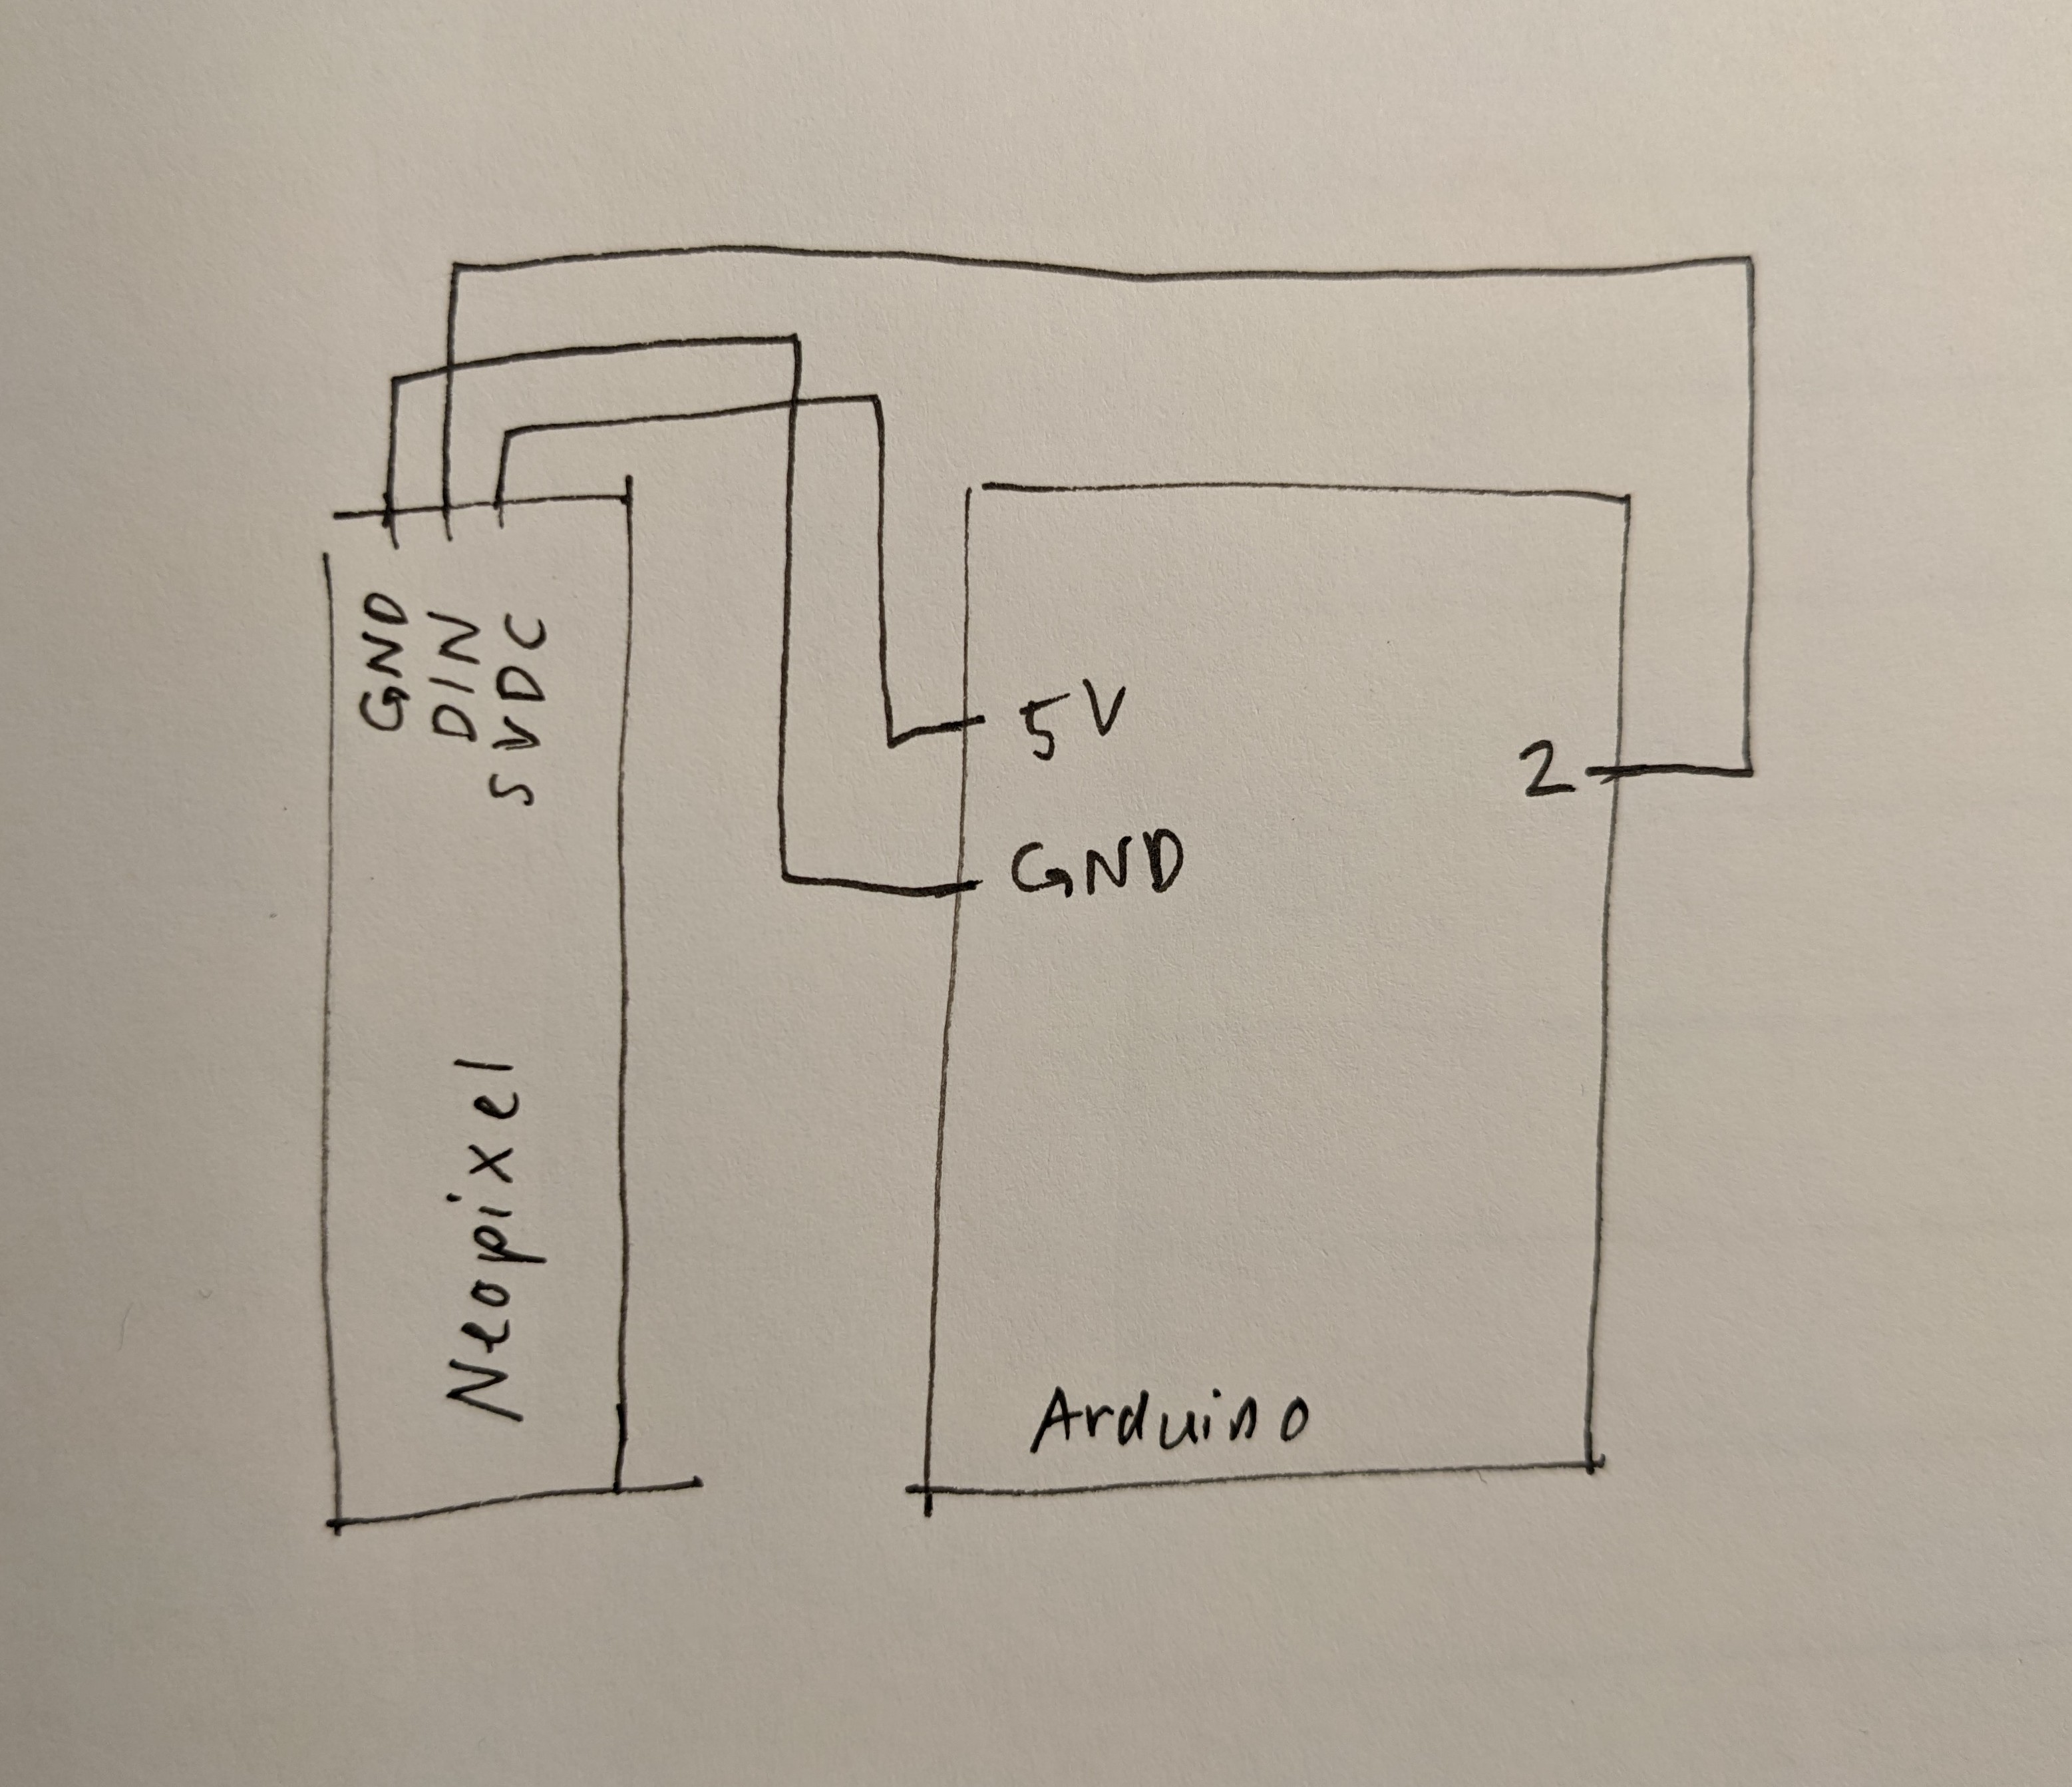 GND
DIN
5VDC
Neopixel
5V
GND
2
Arduino